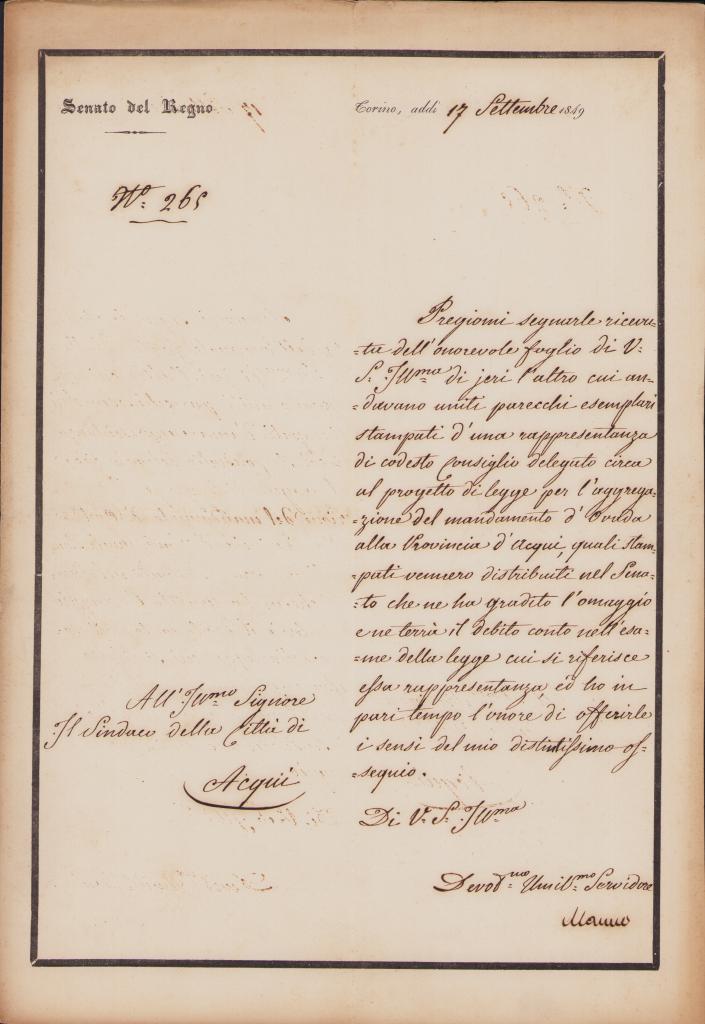 Senato del Regno
Torino, addì 17 Settembre 1849
N.º 265
Pregiomi segnarle ricevu=
=ta dell'onorevole foglio di V.
S. Ill.ma di jeri l'altro cui an=
=davano uniti parecchi esemplari
stampati d'una rappresentanza
di codesto Consiglio delegato circa
al progetto di legge per l'aggrega=
=zione del mandamento d'Ovada
alla Provincia d'Acqui, quali stam=
=pati vennero distribuiti nel Sena=
=to che ne ha gradito l'omaggio
e ne terrà il debito conto nell'esa=
=me della legge cui si riferisce
essa rappresentanza, ed ho in
pari tempo l'onore di offerirle
i sensi del mio distintissimo os=
=sequio.
Di V. S. Ill.ma
Devot.mo Umil.mo Servidore
Manno
All'Ill.mo Signore
Il Sindaco della Città di
Acqui